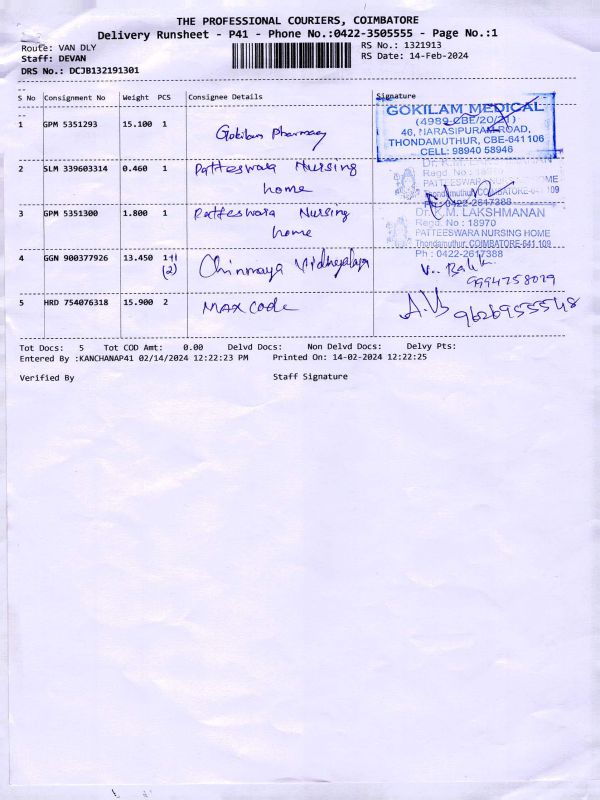 THE PROFESSIONAL COURIERS, COIMBATORE
Delivery Runsheet - P41 - Phone No.:0422-3505555 - Page No.:1
Route: VAN DLY RS No.: 1321913
Staff: DEVAN RS Date: 14-Feb-2024
DRS No.: DCJB132191301
S No Consignment No Weight PCS Consignee Details Signature
1 GPM 5351293 15.100 1 Gokilam Pharmacy
GOKILAM MEDICAL
(4989-CBE/20/21)
46, NARASIPURAM ROAD,
THONDAMUTHUR, CBE-641 106
CELL: 98940 58946
2 SLM 339603314 0.460 1 Patteswara Nursing
home
Regd No : 18970
PATTEESWARA NURSING HOME
Thondamuthur, COIMBATORE-641 109
Ph : 0422-2617388
3 GPM 5351300 1.800 1 Patteswara Nursing
home
Dr. K.M. LAKSHMANAN
Regd. No : 18970
PATTEESWARA NURSING HOME
Thondamuthur, COIMBATORE-641 109
Ph : 0422-2617388
4 GGN 900377926 13.450 1+1 Chinmaya Vidhyalaya
(2)
9994758029
5 HRD 754076318 15.900 2 MAX Code
Tot Docs: 5 Tot COD Amt: 0.00 Delvd Docs: Non Delvd Docs: Delvy Pts:
Entered By :KANCHANAP41 02/14/2024 12:22:23 PM Printed On: 14-02-2024 12:22:25
Verified By Staff Signature